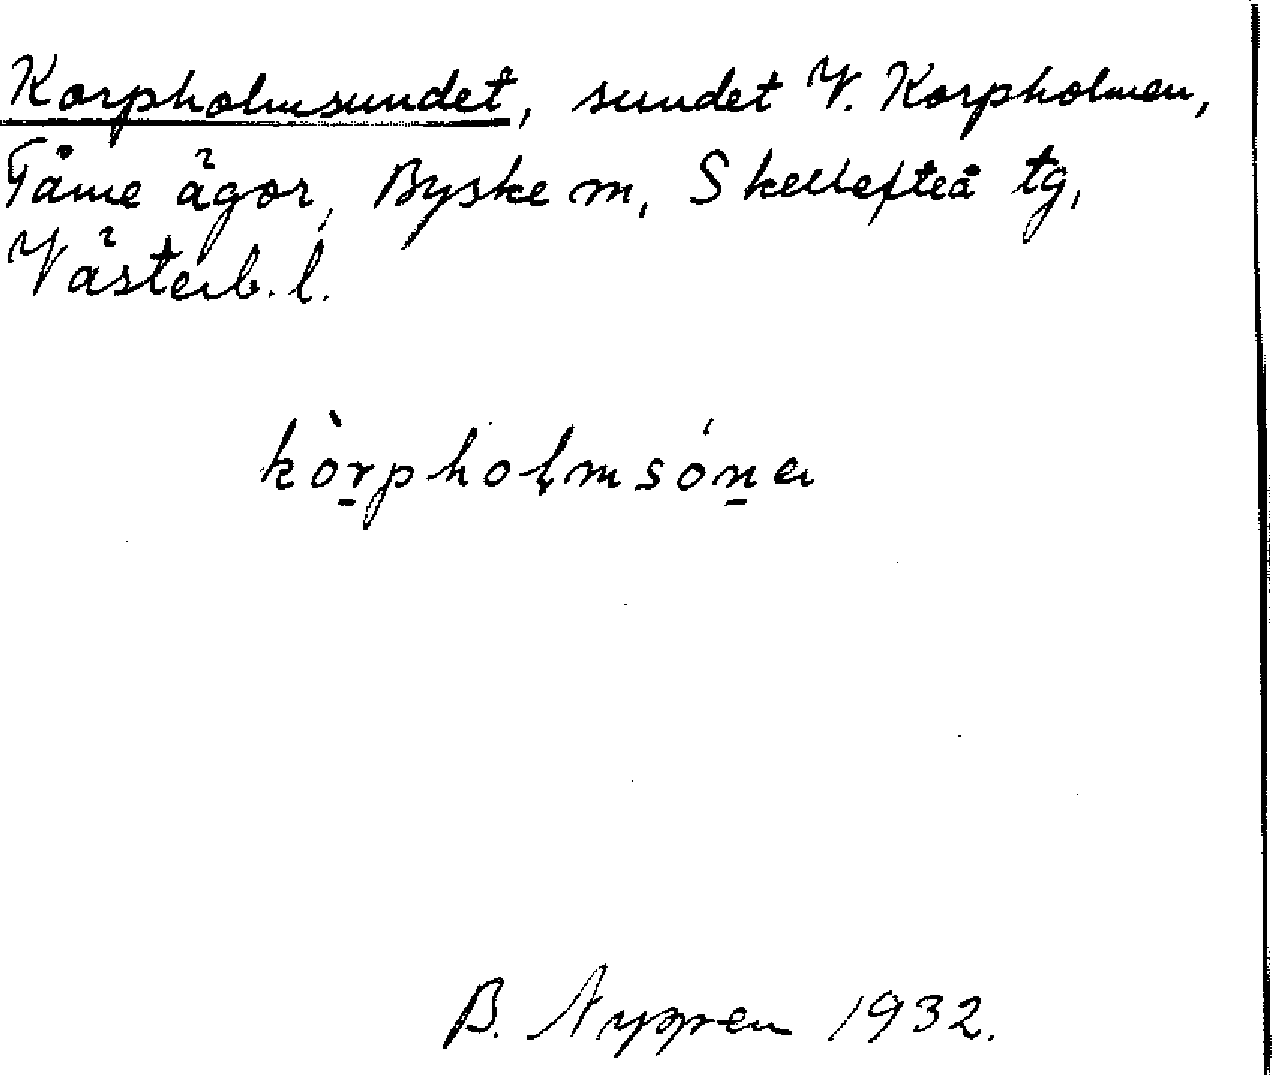 Korpholmsundet, sundet V. Korpholmen,
Tåme ägor, Byske sn, Skellefteå tg,
Västerb. l.
kòr̲pholmsón̲a
B. Nyppen 1932.